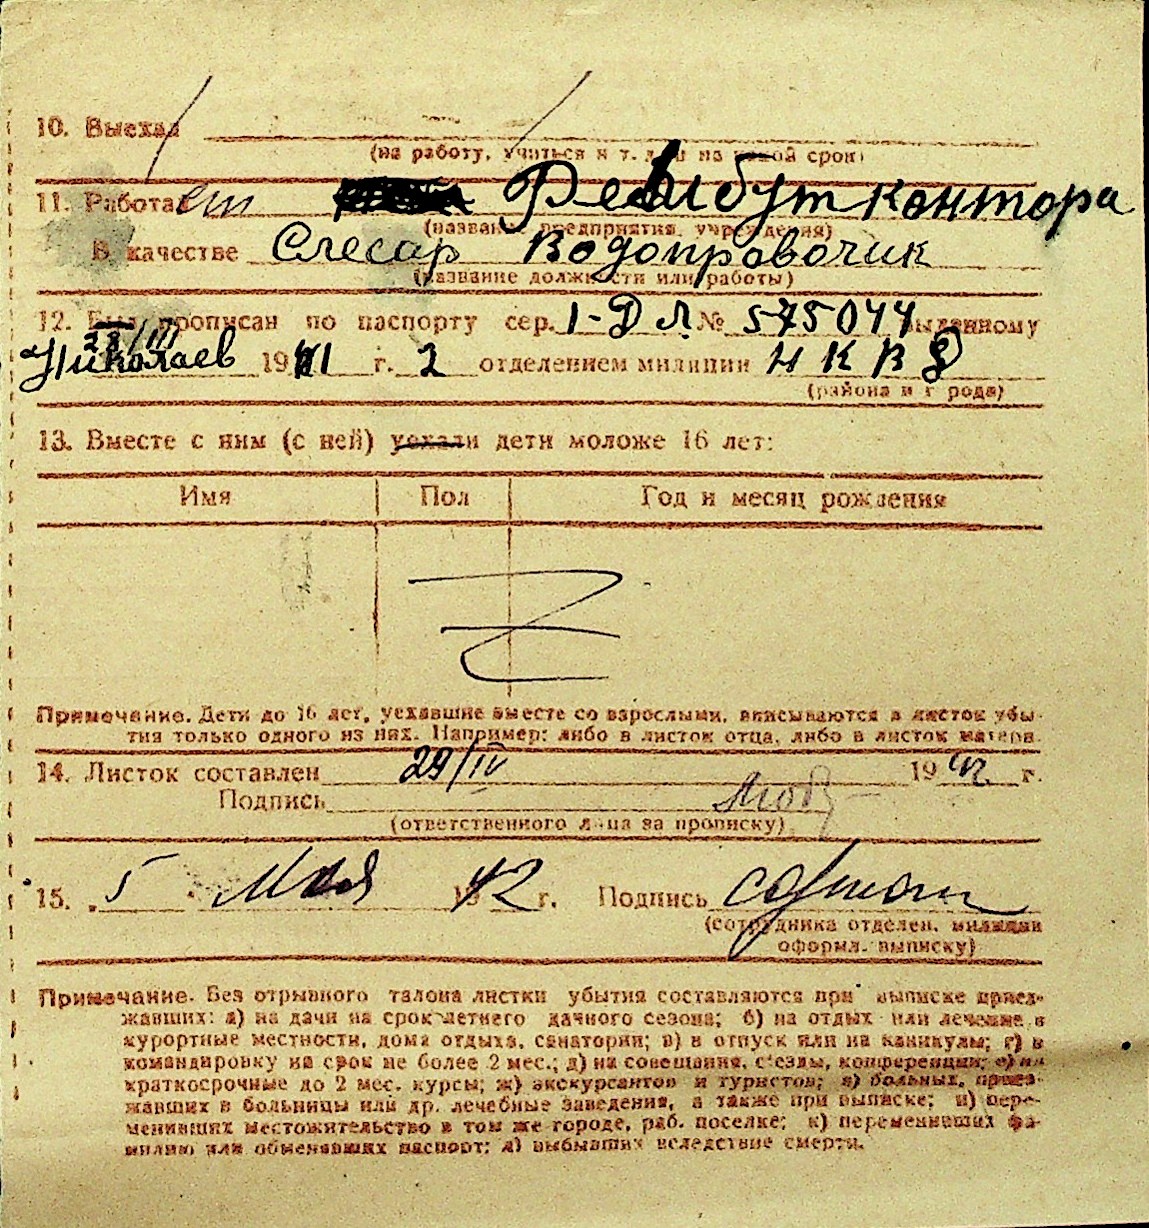 10. Выехал
(на работу, учиться и т. д. и на какой срок)
11. Работает Рембут контора
(название предприятия, учреждения)
В качестве Слесар Водопровочик
(название должности или работы)
12. Был прописан по паспорту сер. I-ДЛ № 575044 выданному
Николаев 1941 г. 2 отделением милиции НКВД
(района и города)
13. Вместе с ним (с ней) уехали дети моложе 16 лет:
Имя Пол Год и месяц рождения
Примечание. Дети до 16 лет, уехавшие вместе со взрослыми, вписываются в листок убы-
тия только одного из них. Например: либо в листок отца, либо в листок матери.
14. Листок составлен 29/IV 1942 г.
Подпись
(ответственного лица за прописку)
15. 5 Мая 1942 г. Подпись
(сотрудника отделен. милиции
оформл. выписку)
Примечание. Без отрывного талона листки убытия составляются при выписке приез-
жавших: а) на дачи на срок летнего дачного сезона; б) на отдых или лечение в
курортные местности, дома отдыха, санатории; в) в отпуск или на каникулы; г) в
командировку на срок не более 2 мес.; д) на совещания, съезды, конференции; е) на
краткосрочные до 2 мес. курсы; ж) экскурсантов и туристов; з) больных, приез-
жавших в больницы или др. лечебные заведения, а также при выписке; и) пере-
менивших местожительство в том же городе, раб. поселке; к) переменивших фа-
милию или обменявших паспорт; л) выбывших вследствие смерти.